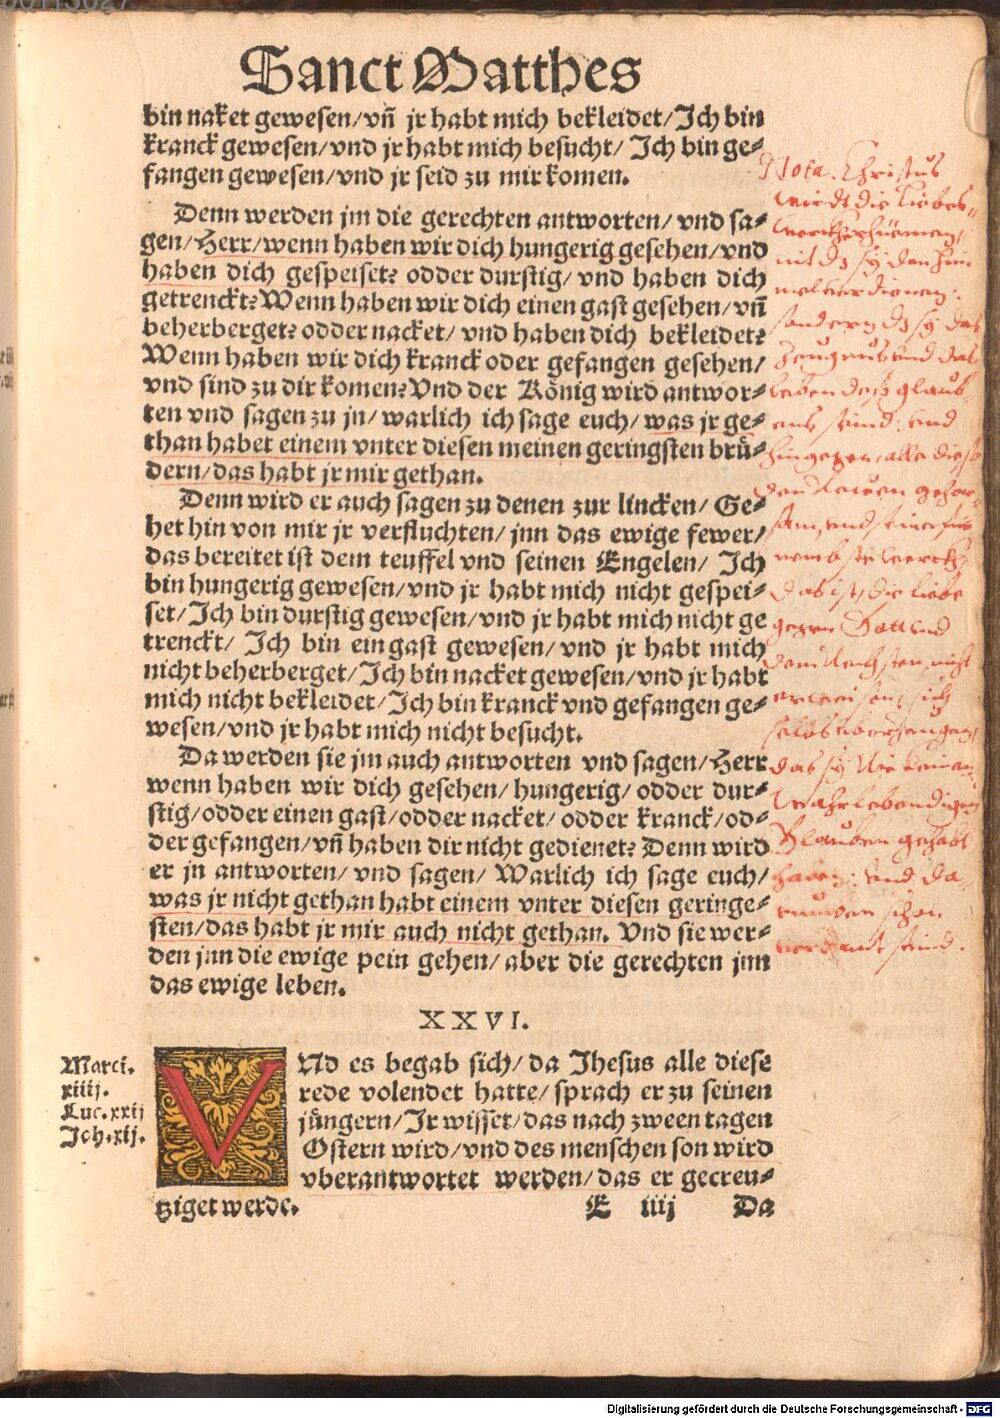 Sanct Matthes
bin naket gewesen/vñ jr habt mich bekleidet/Ich bin
kranck gewesen/vnd jr habt mich besucht/ Ich bin ge⸗
fangen gewesen/vnd jr seid zu mir komen.
Denn werden jm die gerechten antworten/ vnd sa⸗
gen/Herr/wenn haben wir dich hungerig gesehen/vnd
haben dich gespeiset? odder durstig/ vnd haben dich
getrenckt? Wenn haben wir dich einen gast gesehen/vñ
beherberget? odder nacket/ vnd haben dich bekleidet?
Wenn haben wir dich kranck oder gefangen gesehen/
vnd sind zu dir komen? Vnd der König wird antwor⸗
ten vnd sagen zu jn/ warlich ich sage euch/ was jr ge⸗
than habet einem vnter diesen meinen geringsten brü⸗
dern/das habt jr mir gethan.
Denn wird er auch sagen zu denen zur lincken/ Ge⸗
het hin von mir jr verfluchten/ jnn das ewige fewer/
das bereitet ist dem teuffel vnd seinen Engelen/ Ich
bin hungerig gewesen/vnd jr habt mich nicht gespei⸗
set/Ich bin durstig gewesen/vnd jr habt mich nicht ge
trenckt/ Ich bin ein gast gewesen/ vnd jr habt mich
nicht beherberget/Ich bin nacket gewesen/vnd jr habt
mich nicht bekleidet/Ich bin kranck vnd gefangen ge⸗
wesen/vnd jr habt mich nicht besucht.
Da werden sie jm auch antworten vnd sagen/Herr
wenn haben wir dich gesehen/ hungerig/ odder dur⸗
stig/odder einen gast/odder nacket/ odder kranck/od⸗
der gefangen/vñ haben dir nicht gedienet? Denn wird
er jn antworten/ vnd sagen/ Warlich ich sage euch/
was jr nicht gethan habt einem vnter diesen geringe⸗
sten/das habt jr mir auch nicht gethan. Vnd sie wer⸗
den jnn die ewige pein gehen/ aber die gerechten jnn
das ewige leben.
XXVI.
VNd es begab sich/ da Jhesus alle diese
rede volendet hatte/ sprach er zu seinen
jüngern/Ir wisset/das nach zween tagen
Ostern wird/vnd des menschen son wird
vberantwortet werden/das er gecreu⸗
tziget werde.
E iiij Da
Marci.
xiiij.
Luc.xxij
Joh.xij.
Nota. Christus
wirdt die Liebes⸗
werckh
nit dz sÿ den him
mel verdienen:
sondern dz sÿ das
Zeugnus und das
Leben deß glaub⸗
ens seind: und
hingegen, alle
das ist, die liebe
gegen Gott und
dem Nechsten, nicht
das sÿ nie keinen
Wahr lebendigen
Glauben gehabt
haben: und da⸗
schon
verdamt seind.
Digitalisierung gefördert durch die Deutsche Forschungsgemeinschaft - DFG